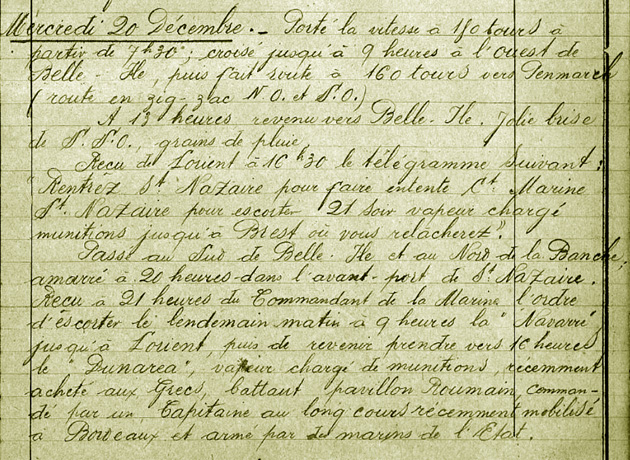 Mercredi 20 Décembre. - Porté la vitesse à 150 tours à
partir de 7h30 ; croisé jusqu'à 9 heures à l'Ouest de
Belle-Ile, puis fait route à 160 tours vers Penmarch
(route en zig-zac N.O. et S.O.)
A 13 heures revenu vers Belle-Ile. Jolie brise
de S.S.O., grains de pluie.
Reçu de Lorient à 16h30 le télégramme suivant :
"Rentrez St Nazaire pour faire entente Ct Marine
St Nazaire pour escorter 21 soir vapeur chargé
munitions jusqu'à Brest où vous relâcherez".
Passé au Sud de Belle-Ile et au Nord de la Banche,
amarré à 20 heures dans l'avant-port de St Nazaire.
Reçu à 21 heures du Commandant de la Marine l'ordre
d'escorter le lendemain matin à 9 heures la "Navarre"
jusqu'à Lorient, puis de revenir prendre vers 16 heures
le "Dunarea", vapeur chargé de munitions, récemment
acheté aux Grecs, battant pavillon Roumain, comman-
dé par un Capitaine au long cours récemment mobilisé
à Bordeaux et armé par des marins de l'Etat.